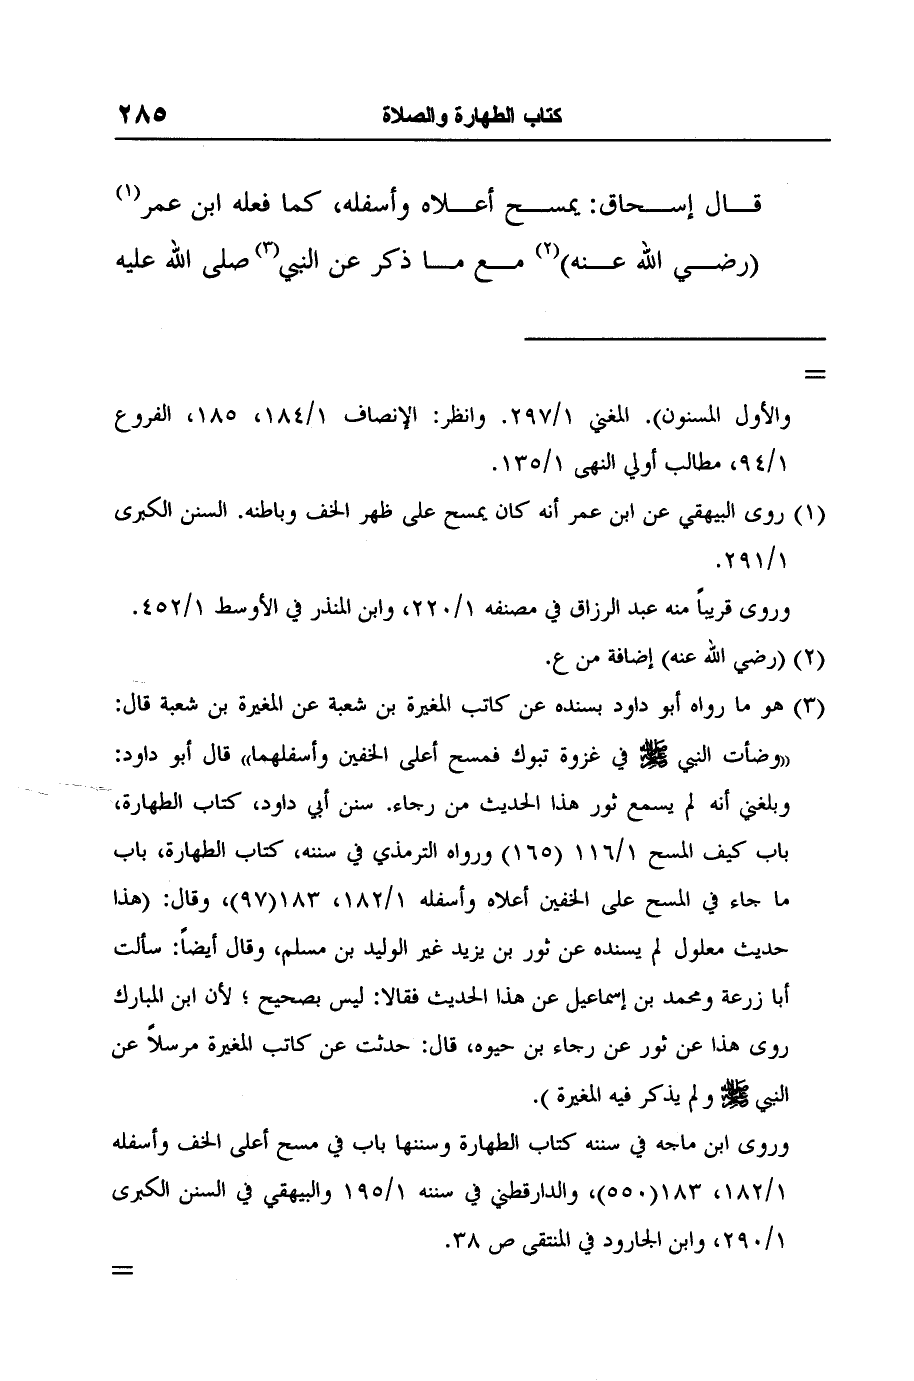 كتاب الطهارة والصلاة ٢٨٥
قـال إسـحاق: يمسـح أعـلاه وأسفله، كما فعله ابن عمر(١)
(رضـي الله عـنه)(٢) مـع مـا ذكر عن النبي(٣) صلى الله عليه
=
والأول المسنون). المغني ٢٩٧/١. وانظر: الإنصاف ١٨٤/١، ١٨٥، الفروع
٩٤/١، مطالب أولي النهى ١٣٥/١.
(١) روى البيهقي عن ابن عمر أنه كان يمسح على ظهر الخف وباطنه. السنن الكبرى
٢٩١/١.
وروى قريباً منه عبد الرزاق في مصنفه ٢٢٠/١، وابن المنذر في الأوسط ٤٥٢/١.
(٢) (رضي الله عنه) إضافة من ع.
(٣) هو ما رواه أبو داود بسنده عن كاتب المغيرة بن شعبة عن المغيرة بن شعبة قال:
«وضأت النبي ﷺ في غزوة تبوك فمسح أعلى الخفين وأسفلهما» قال أبو داود:
وبلغني أنه لم يسمع ثور هذا الحديث من رجاء. سنن أبي داود، كتاب الطهارة،
باب كيف المسح ١١٦/١ (١٦٥) ورواه الترمذي في سننه، كتاب الطهارة، باب
ما جاء في المسح على الخفين أعلاه وأسفله ١٨٢/١، ١٨٣(٩٧)، وقال: (هذا
حديث معلول لم يسنده عن ثور بن يزيد غير الوليد بن مسلم، وقال أيضاً: سألت
أبا زرعة ومحمد بن إسماعيل عن هذا الحديث فقالا: ليس بصحيح ؛ لأن ابن المبارك
روى هذا عن ثور عن رجاء بن حيوه، قال: حدثت عن كاتب المغيرة مرسلاً عن
النبي ﷺ ولم يذكر فيه المغيرة ).
وروى ابن ماجه في سننه كتاب الطهارة وسننها باب في مسح أعلى الخف وأسفله
١٨٢/١، ١٨٣(٥٥٠)، والدارقطني في سننه ١٩٥/١ والبيهقي في السنن الكبرى
٢٩٠/١، وابن الجارود في المنتقى ص ٣٨.
=